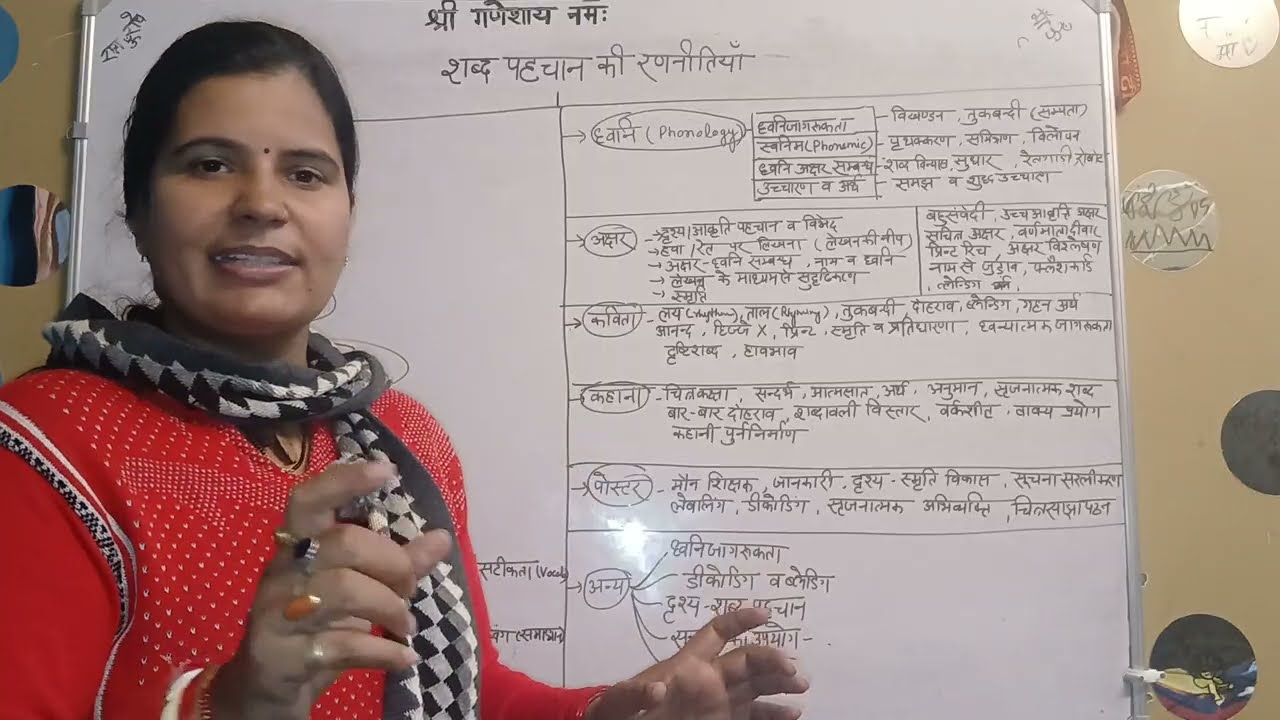 श्री गणेशाय नमः
शब्द पहचान की रणनीतियाँ
ध्वनि (Phonology)
ध्वनिजागरूकता - विखण्डन, तुकबन्दी (सम्पता)
स्वनिम (Phonemic) - पृथक्करण, समिश्रण, विलोपन
ध्वनि अक्षर सम्बन्ध - शब्द विन्यास, सुधार, रेलगाडी, रोबोट
उच्चारण व अर्थ - समझ व शुद्ध उच्चारण
अक्षर
→ दृश्य/आकृति पहचान व विभेद
→ हवा/रेत पर लिखना (लेखन की नींव)
→ अक्षर-ध्वनि सम्बन्ध, नाम व ध्वनि
→ लेखन के माध्यम से सुदृढिकरण
→ स्मृति
बहुसंवेदी, उच्च आवृति अक्षर
सचित अक्षर, वर्णमाला दीवार
प्रिन्ट रिच, अक्षर विश्लेषण
नाम से जुड़ाव, फ्लैशकार्ड
, ब्लेन्डिंग
कविता - लय (rhythm), ताल (Rhyming), तुकबन्दी, दोहराव, ब्लेन्डिंग, गहन अर्थ
आनन्द, हिज्जे X, प्रिन्ट, स्मृति व प्रतिधारणा, ध्वन्यात्मक जागरूकता
दृष्टिशब्द, हावभाव
कहानी - चित्रकथा, सन्दर्भ, आत्मसात, अर्थ, अनुमान, सृजनात्मक शब्द
बार-बार दोहराव, शब्दावली विस्तार, वर्कशीट, वाक्य प्रयोग
कहानी पुर्ननिर्माण
पोस्टर - मौन शिक्षक, जानकारी, दृश्य-स्मृति विकास, सूचना सरलीकरण
लेबलिंग, डीकोडिंग, सृजनात्मक अभिव्यक्ति, चित्रसाझा पठन
अन्य
ध्वनिजागरूकता
डीकोडिंग व ब्लेंडिग
दृश्य-शब्द पहचान
का उपयोग -
सटीकता (Vocab